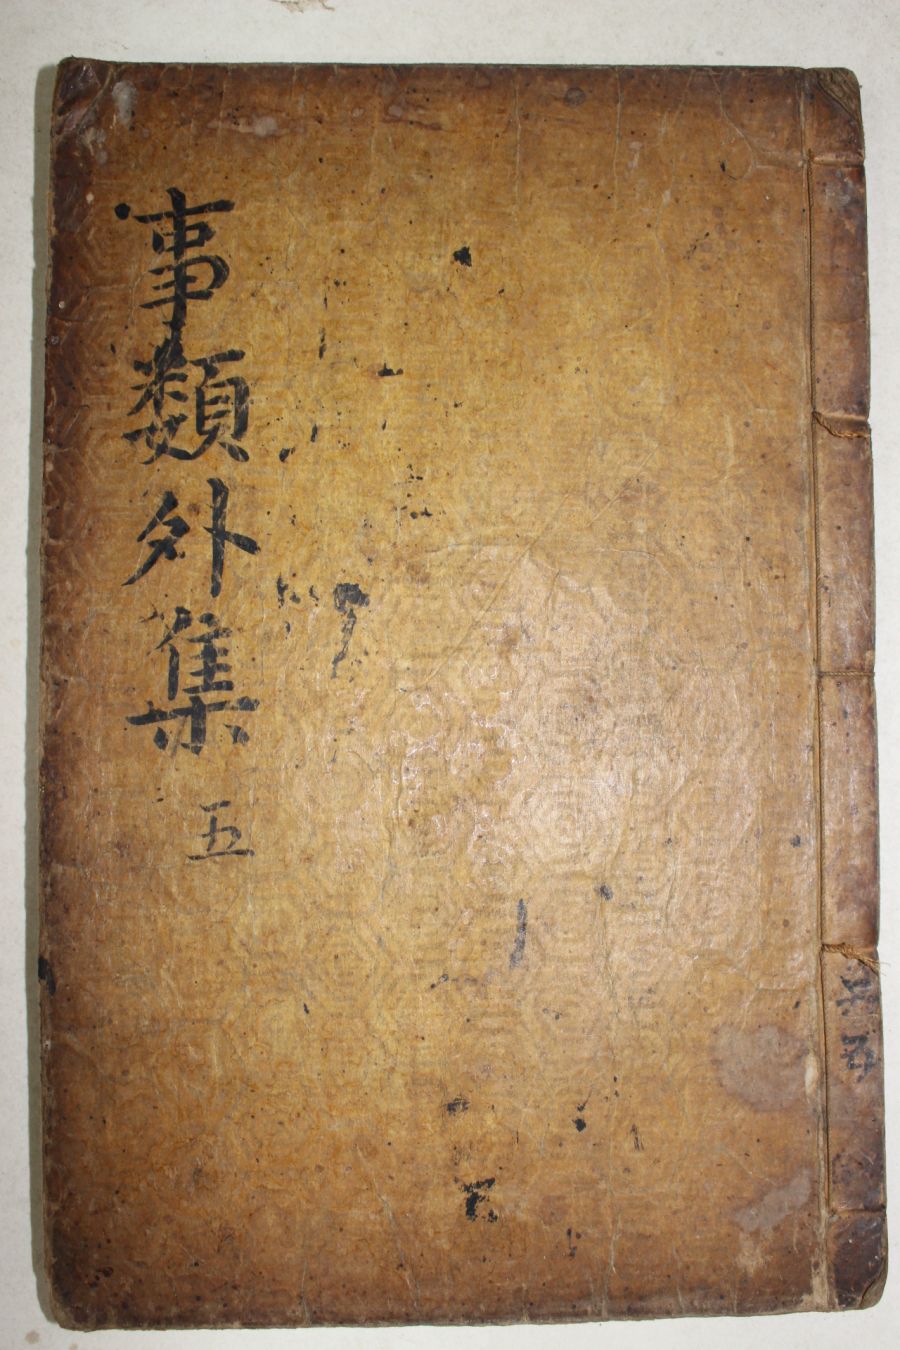 事類外集
五